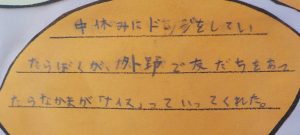 中休みにドッジをしてい
たらぼくが、外野で友だちをあっ
たらなかまが「ナイス」っていってくれた。